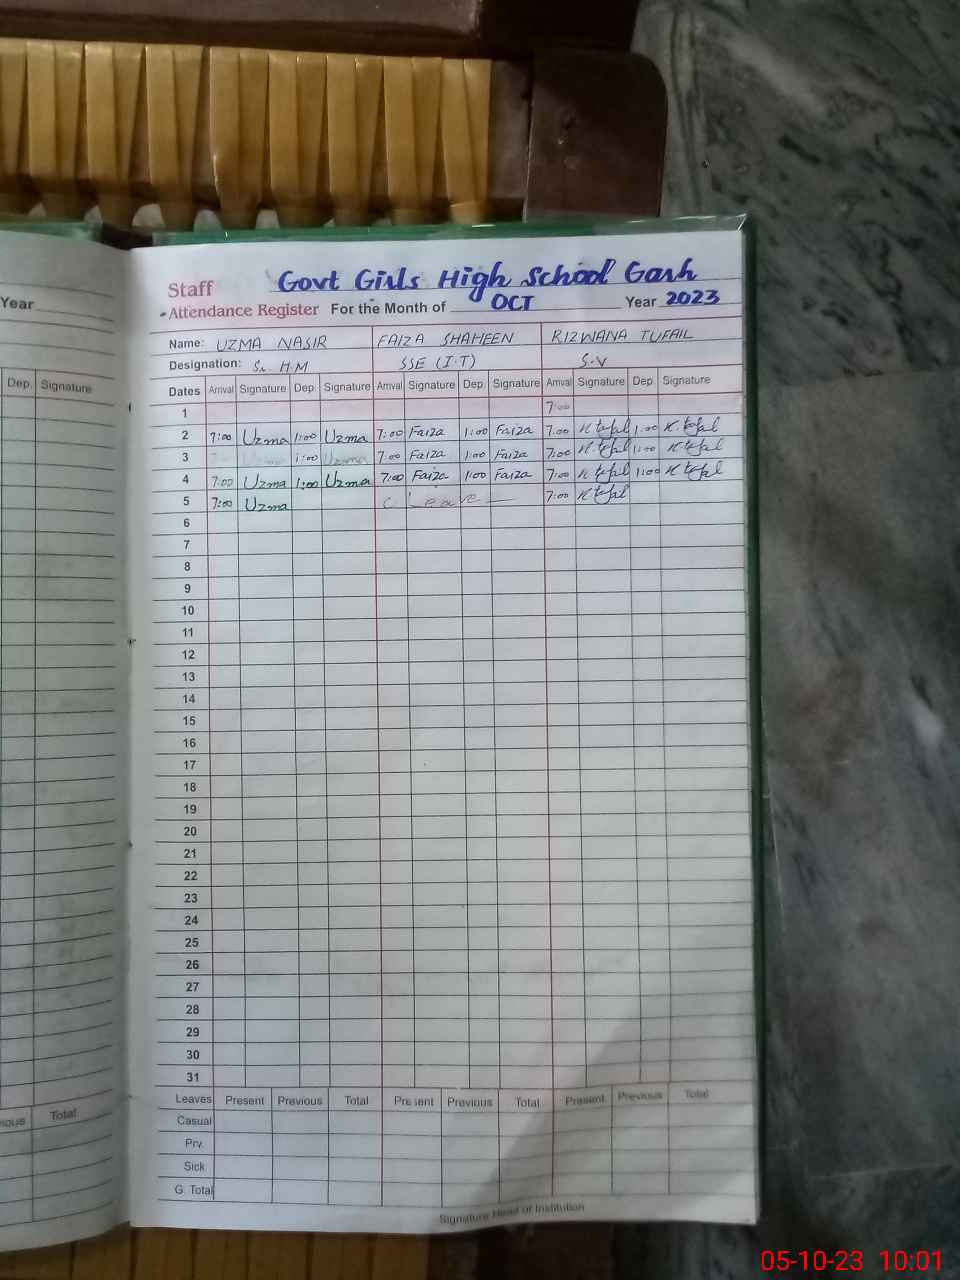 Year
Dep. Signature
Total
Govt Girls High School Garh
Staff
Attendance Register For the Month of OCT Year 2023
Name: UZMA NASIR FAIZA SHAHEEN RIZWANA TUFAIL
Designation: S. H.M SSE (I.T) S.V
Dates Arrival Signature Dep. Signature Arrival Signature Dep. Signature Arrival Signature Dep. Signature
1 7:00
2 7:00 Uzma 1:00 Uzma 7:00 Faiza 1:00 Faiza 7:00 R.tufail 1:00 R.tufail
3 1:00 Uzma 7:00 Faiza 1:00 Faiza 7:00 R.tufail 1:00 R.tufail
4 7:00 Uzma 1:00 Uzma 7:00 Faiza 1:00 Faiza 7:00 R.tufail 1:00 R.tufail
5 7:00 Uzma C Leave 7:00 R.tufail
6
7
8
9
10
11
12
13
14
15
16
17
18
19
20
21
22
23
24
25
26
27
28
29
30
31
Leaves Present Previous Total Present Previous Total Present Previous Total
Casual
Prv.
Sick
G. Total
Signature Head of Institution
05-10-23 10:01